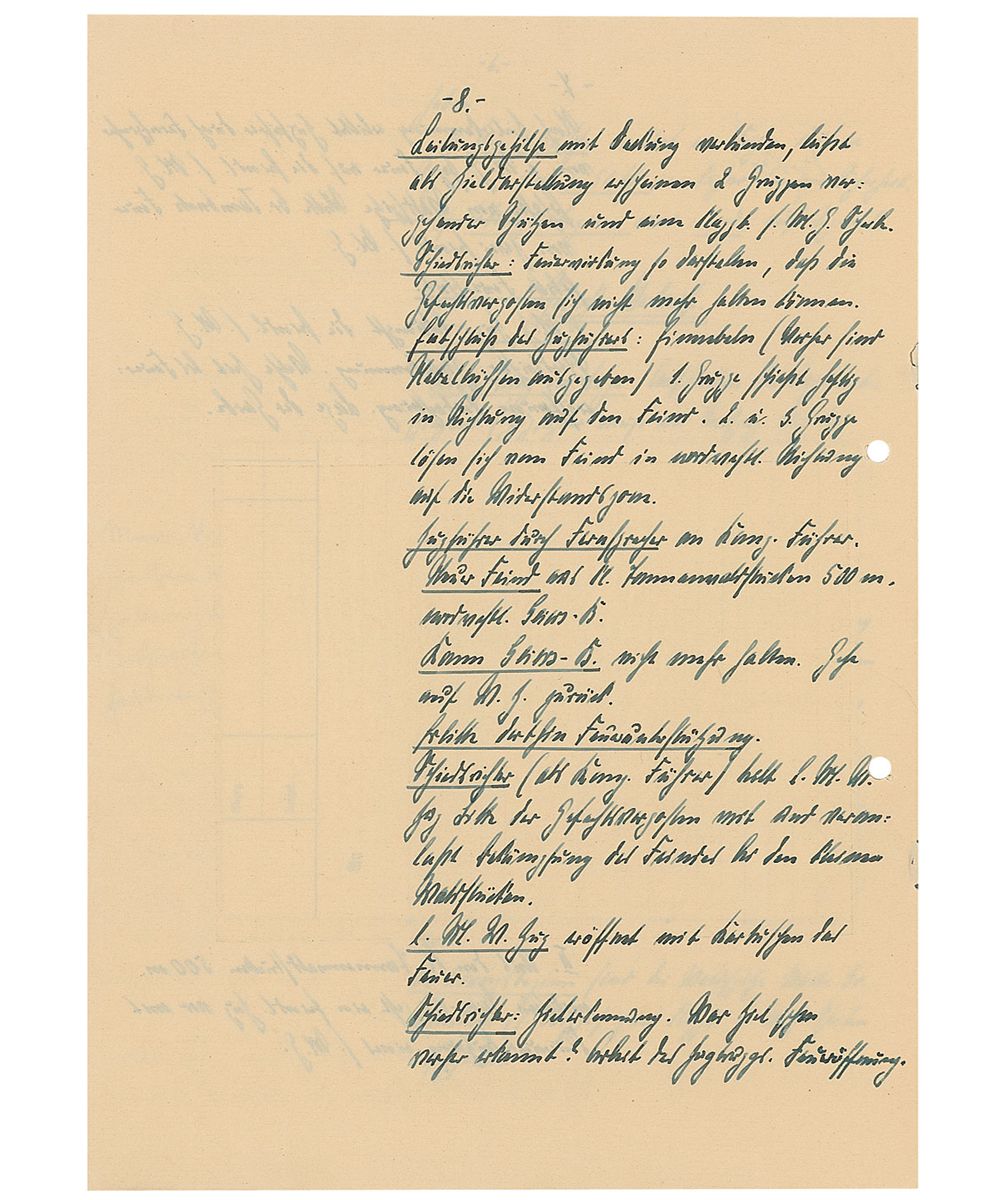 -8.-
Leitungsgehilfe mit Deckung verbunden, läßt
als Zieldarstellung erscheinen 2 Gruppen vor=
gehender Schützen und eine s. M. G. Scheibe.
Schiedsrichter: Feuerwirkung so darstellen, daß die
Gefechtsvorposten sich nicht mehr halten können.
Entschluß des Zugführers: Einnebeln (Vorher sind
Nebelbüchsen ausgegeben) 1. Gruppe schießt heftig
in Richtung auf den Feind. 2. u. 3. Gruppe
lösen sich vom Feind in nordwestl. Richtung
auf die Widerstandszone.
Zugführer durch Fernsprecher an Komp. Führer.
Neuer Feind aus N. Tannenwaldstücken 500 m.
nordwestl.
Kann nicht mehr halten. Gehe
auf W. Z. zurück.
Erbitte dorthin Feuerunterstützung.
Schiedsrichter (als Komp. Führer) teilt l. M. W.
Zug Bitte der Gefechtsvorposten mit und veran=
laßt Bekämpfung des Feindes bei den kleinen
Waldstücken.
l. M. W. Zug eröffnet mit Kartuschen das
Feuer.
Schiedsrichter: Zielerkennung. War Ziel schon
vorher erkannt? Arbeit des Feueröffnung.